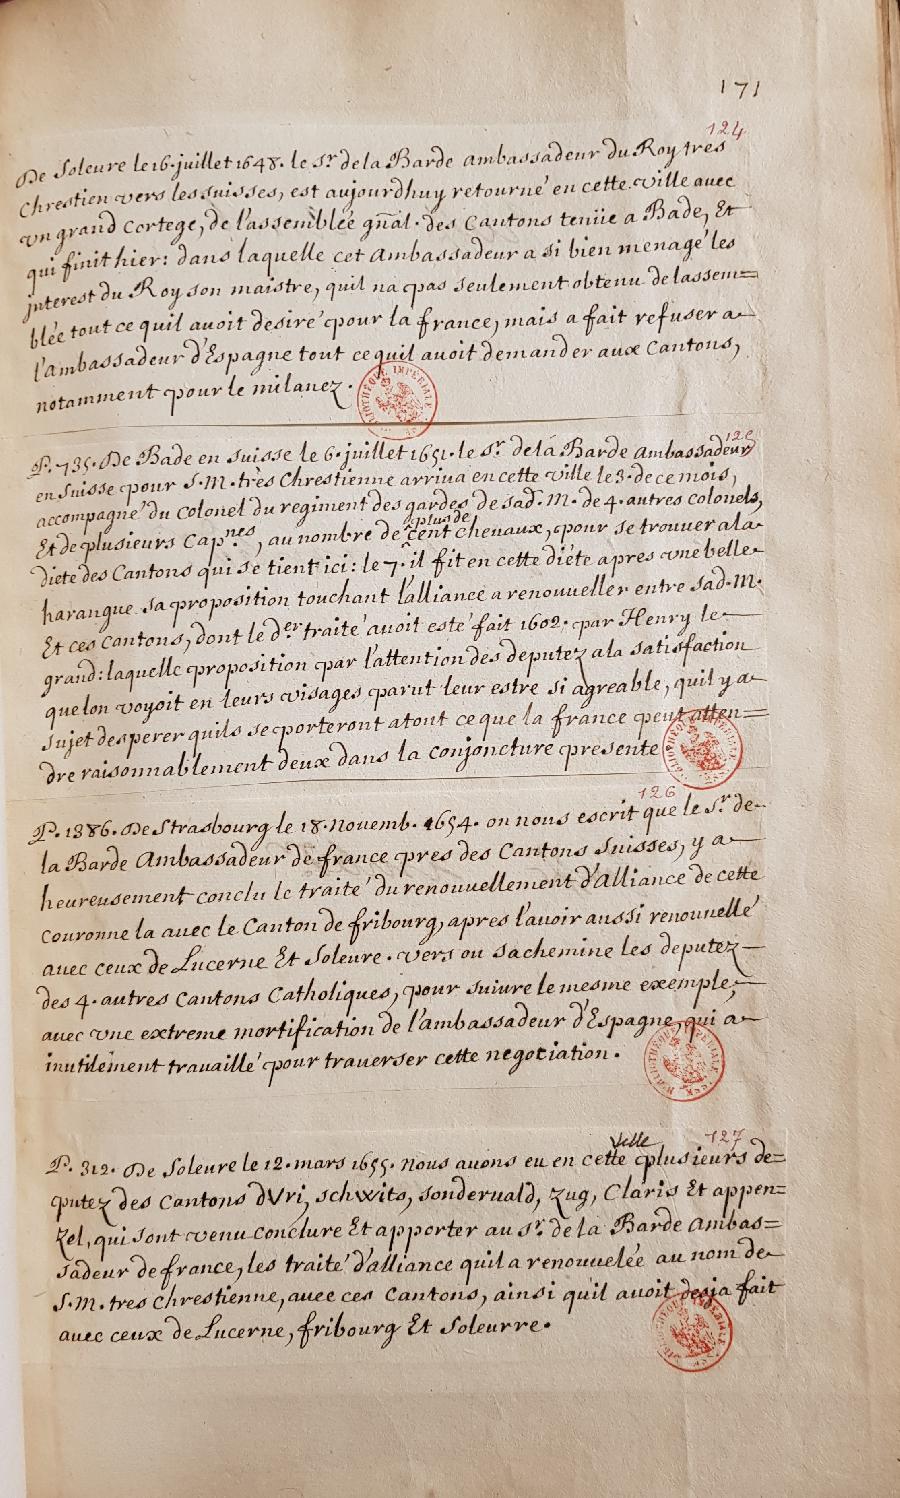 171
124
De Soleure le 16. juillet 1648. le Sr de la Barde ambassadeur du Roy tres
Chrestien vers les suisses, est aujourdhuy retourné en cette ville avec
vn grand Cortege, de l'assemblée gñal. des Cantons tenüe a Bade, Et
qui finit hier: dans laquelle cet Ambassadeur a si bien menagé les
jnterest du Roy son maistre, quil na pas seulement obtenu de lassem=
blée tout ce quil avoit desiré pour la france, mais a fait refuser a
l'ambassadeur d'Espagne tout ce quil avoit demander aux Cantons,
notamment pour le milanez.
BIBLIOTHÈQUE IMPÉRIALE
125
P. 735. De Bade en suisse le 6. juillet 1651. le Sr. de la Barde ambassadeur
en suisse pour S. M. très Chrestienne arriva en cette ville le 3. de ce mois,
accompagné du Colonel du regiment des gardes de sad. M. de 4. autres Colonels,
Et de plusieurs Capnes, au nombre de plus de cent chevaux, pour se trouver a la
diete des Cantons qui se tient ici: le 7. il fit en cette diéte apres vne belle
harangue sa proposition touchant l'alliance a renouveller entre sad. M.
Et ces Cantons, dont le der traité avoit esté fait 1602. par Henry le
grand: laquelle proposition par l'attention des deputez a la satisfaction
que lon voyoit en leurs visages parut leur estre si agreable, quil y a
sujet desperer quils se porteront a tout ce que la france peut atten=
dre raisonnablement deux dans la conjoncture presente
BIBLIOTHÈQUE IMPÉRIALE
126
P. 1386. De Strasbourg le 18. Novemb. 1654. on nous escrit que le Sr. de
la Barde Ambassadeur de france pres des Cantons Suisses, y a
heureusement conclu le traité du renouvellement d'Alliance de cette
Couronne la avec le Canton de fribourg, apres l'avoir aussi renouvellé
avec ceux de Lucerne Et Soleure. vers ou sachemine les deputez
des 4. autres Cantons Catholiques, pour suivre le mesme exemple,
avec vne extreme mortification de l'ambassadeur d'Espagne, qui a
inutilement travaillé pour traverser cette negotiation.
BIBLIOTHÈQUE IMPÉRIALE
127
P. 312. De Soleure le 12. mars 1655. Nous avons eu en cette ville plusieurs de=
putez des Cantons dVri, schwits, sondervald, zug, Claris Et appen=
zel, qui sont venu conclure Et apporter au Sr. de la Barde Ambas=
sadeur de france, les traité d'alliance quil a renouvelée au nom de
S. M. tres Chrestienne, avec ces Cantons, ainsi quil avoit desja fait
avec ceux de Lucerne, fribourg Et Soleurre.
BIBLIOTHÈQUE IMPÉRIALE